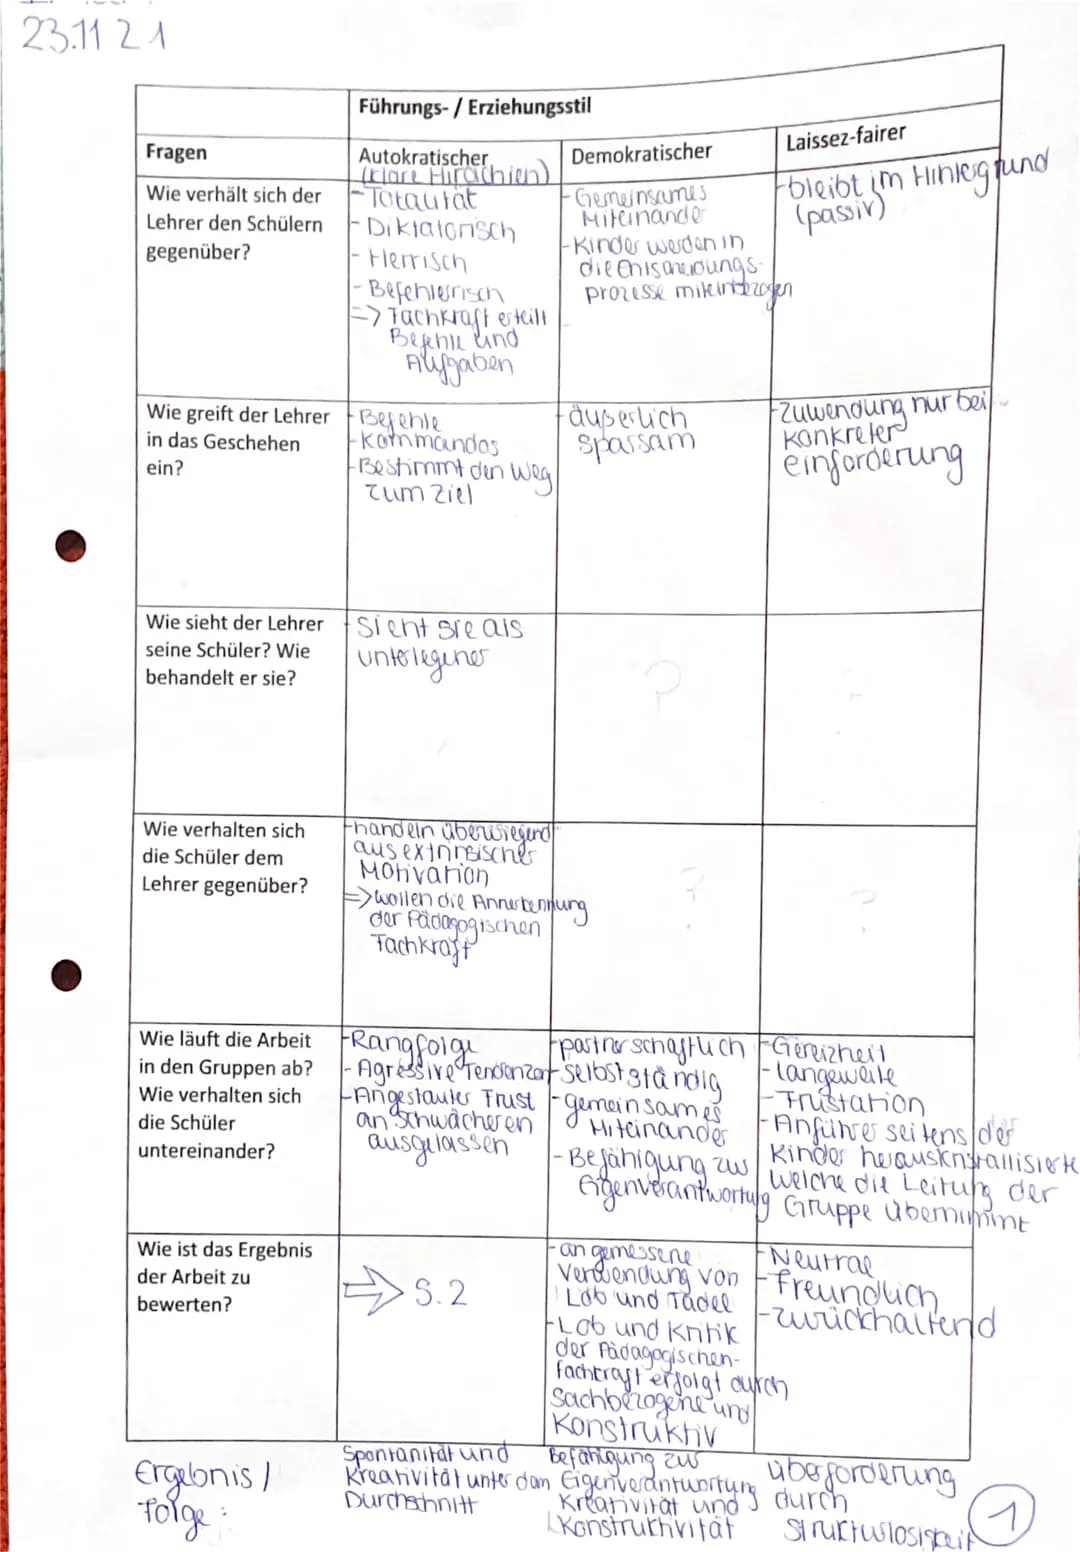 23.11 21
Führungs- / Erziehungsstil
Fragen
Autokratischer
(klare Hirachien)
Demokratischer
Laissez-fairer
Wie verhält sich der
Lehrer den Schülern
gegenüber?
- Totalität
- Diktatorisch
- Herrisch
- Befehlerrisch
=> Fachkraft erteilt
Befehle und
Aufgaben
- Gemeinsames
Miteinander
- Kinder werden in
die Entscheidungs-
prozesse miteinbezogen
- bleibt im Hintergrund
(passiv)
Wie greift der Lehrer
in das Geschehen
ein?
- Befehle
- Kommandos
- Bestimmt den Weg
zum Ziel
- äuserlich
spassam
- Zuwendung nur bei
konkreter
einforderung
Wie sieht der Lehrer
seine Schüler? Wie
behandelt er sie?
- sieht sie als
unterlegener
?
?
Wie verhalten sich
die Schüler dem
Lehrer gegenüber?
- handeln überwiegend
aus extrinsischer
Motivation
=> wollen die Annerkennung
der Pädagogischen
Fachkraft
?
?
Wie läuft die Arbeit
in den Gruppen ab?
Wie verhalten sich
die Schüler
untereinander?
- Rangfolge
- Agressive Tendenzen
- Angestauter Frust
an Schwächeren
ausgelassen
- partnerschaftlich
- selbstständig
- gemeinsames
Miteinander
- Befähigung zur
Eigenverantwortung
- Gereiztheit
- langeweile
- Frustration
- Anführer seitens der
Kinder herauskristallisierte
welche die Leitung der
Gruppe übernimmt
Wie ist das Ergebnis
der Arbeit zu
bewerten?
=> S.2
- angemessene
Verwendung von
Lob und Tadel
- Lob und Kritik
der Pädagogischen-
fachkraft erfolgt durch
Sachbezogene und
Konstruktiv
- Neutral
- freundlich
- zurückhaltend
Ergebnis /
folge:
Spontanität und
Kreativität unter dem
Durchschnitt
Befähigung zur
Eigenverantwortung
Kreativität und
Konstruktivität
überforderung
durch
Strukturlosigkeit
1